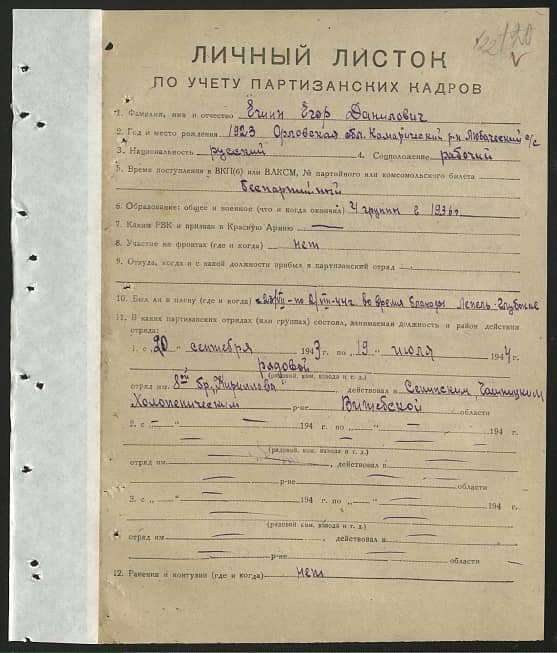 ЛИЧНЫЙ ЛИСТОК
ПО УЧЕТУ ПАРТИЗАНСКИХ КАДРОВ
1. Фамилия, имя и отчество Егин Егор Данилович
2. Год и место рождения 1923 Орловская обл. Комаричский р-н Любаческий с/с
3. Национальность русский 4. Соцположение рабочий
5. Время поступления в ВКП(б) или ВЛКСМ, № партийного или комсомольского билета
беспартийный
6. Образование: общее и военное (что и когда окончил) 4 группы в 1936 г.
7. Каким РВК и призван в Красную Армию —
8. Участие на фронтах (где и когда) нет
9. Откуда, когда и с какой должности прибыл в партизанский отряд —
10. Был ли в плену (где и когда) во время блокады Лепель-Глубокие
11. В каких партизанских отрядах (или группах) состоял, занимаемая должность и район действия
отряда:
1. с „20 “ сентября 1943 г. по 19 “ июля 1944 г.
рядовой
(рядовой, ком. взвода и т. д.)
отряд им. 8ой бр. „Кириллова“ действовал в Сенинским Чашницком
Холопеническим р-не Витебской области
2. с — “ — 194 г. по — “ — 194 г.
(рядовой, ком. взвода и т. д.)
отряд им. — , действовал в —
— р-не — области
3. с „— “ — 194 г. по „— “ — 194 г.
(рядовой, ком. взвода и т. д.)
отряд им — , действовал в —
— р-не — области
12. Ранения и контузии (где и когда) нет